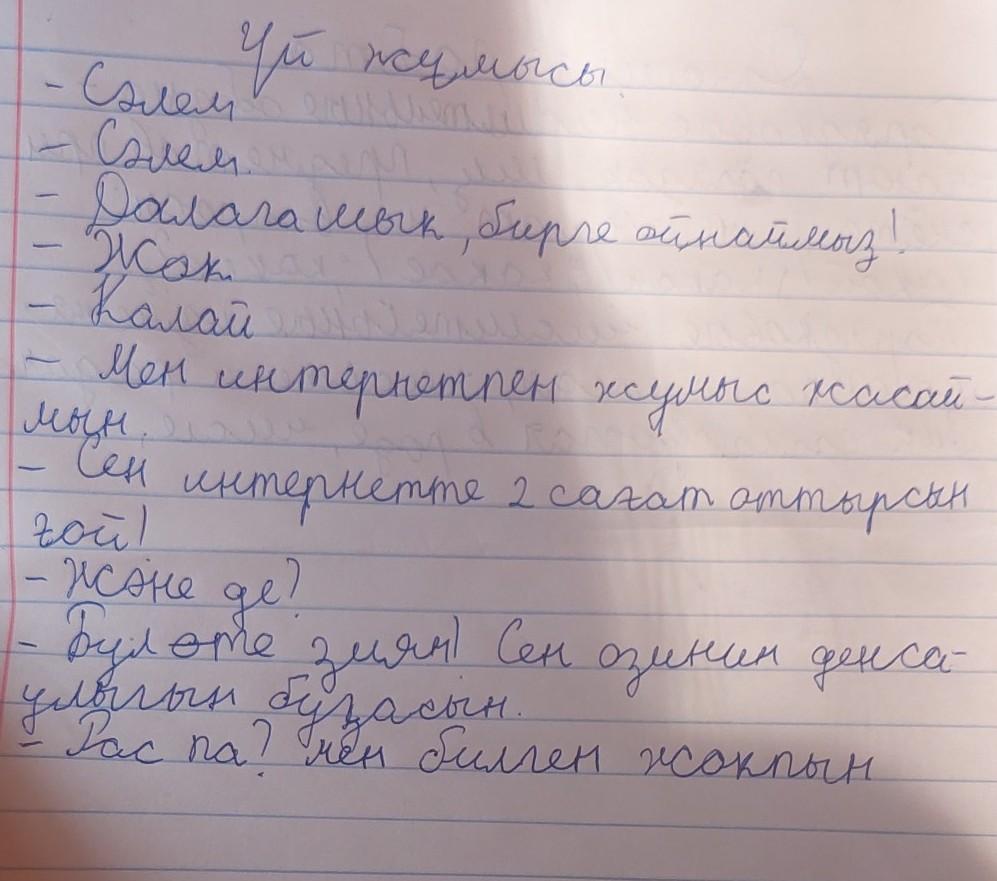 Үй жұмысы.
- Сәлем
- Сәлем.
- Далагашык, бирге ойнаймыз!
- Жок.
- Калай
- Мен интернетпен жумыс жасай-
мын.
- Сен интернетте 2 сағат оттырсын
ғой!
- Және де?
- Бул өте зиян! Сен озинин денса-
улыгын бузасын.
- Рас па? мен билген жокпын